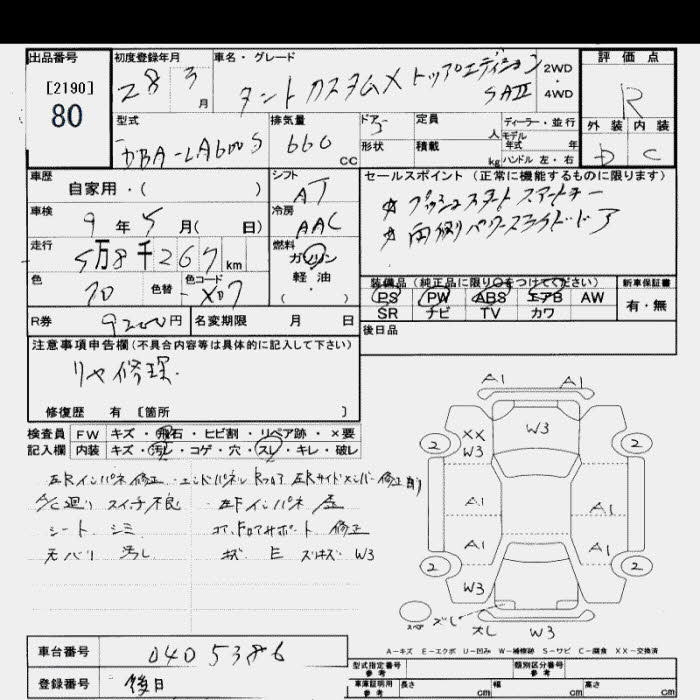 出品番号
[2190]
80
初度登録年月
28 3 月
車名・グレード
タント カスタムX トップエディション SAⅡ
2WD
・
4WD
評価点
R
外装 内装
D C
型式
DBA-LA600S
排気量
660 cc
ドア
5
形状
定員
人
積載
kg
ディーラー・並行
モデル
年式 年
ハンドル 左・右
車歴
自家用・( )
シフト
AT
車検
9 年 5 月( 日)
冷房
AAC
走行
5万8千267 km
燃料
ガソリン
軽・油
( )
色
色替
色コード
X07
R券
9200円
名変期限 月 日
セールスポイント(正常に機能するものに限ります)
☆プッシュスタート スマートキー
☆両側パワースライドドア
装備品(純正品に限り○をつけてください)
PS PW ABS エアB AW
SR ナビ TV カワ
新車保証書
有・無
後日品
注意事項申告欄(不具合内容等は具体的に記入して下さい)
リヤ修理.
修復歴 有 [箇所 ]
検査員
記入欄
FW キズ・飛石・ヒビ割・リペア跡・×要
内装 キズ・汚レ・コゲ・穴・スレ・キレ・破レ
左Rインパネ修正 エンドパネル Rフロア 左Rサイドメンバー修正
A/C廻り スイッチ不良 左Fインパネ
シート シミ コアサポート 修正
天バリ 汚し キズ E スリキズ W3
A1 A1
W3
2 XX W3 2
A1 A1
A1 A1
2 W3 2
スペア
スレ W3
A-キズ E-エクボ U-凹み W-補修跡 S-サビ C-腐食 XX-交換済
車台番号
0405386
登録番号
後日
型式指定番号
参考
類別区分番号
参考
車庫証明用
参考
長さ cm 幅 cm 高さ cm